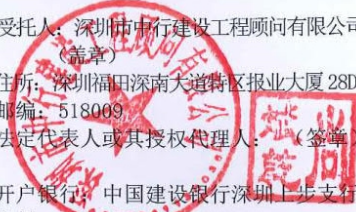 受托人:深圳市中行建设工程顾问有限公司
(盖章)
住所:深圳福田深南大道特区报业大厦 28D
邮编:518009
法定代表人或其授权代理人:(签章
开户银行:中国建设银行深圳上步支行
深圳市中行建设工程顾问有限公司